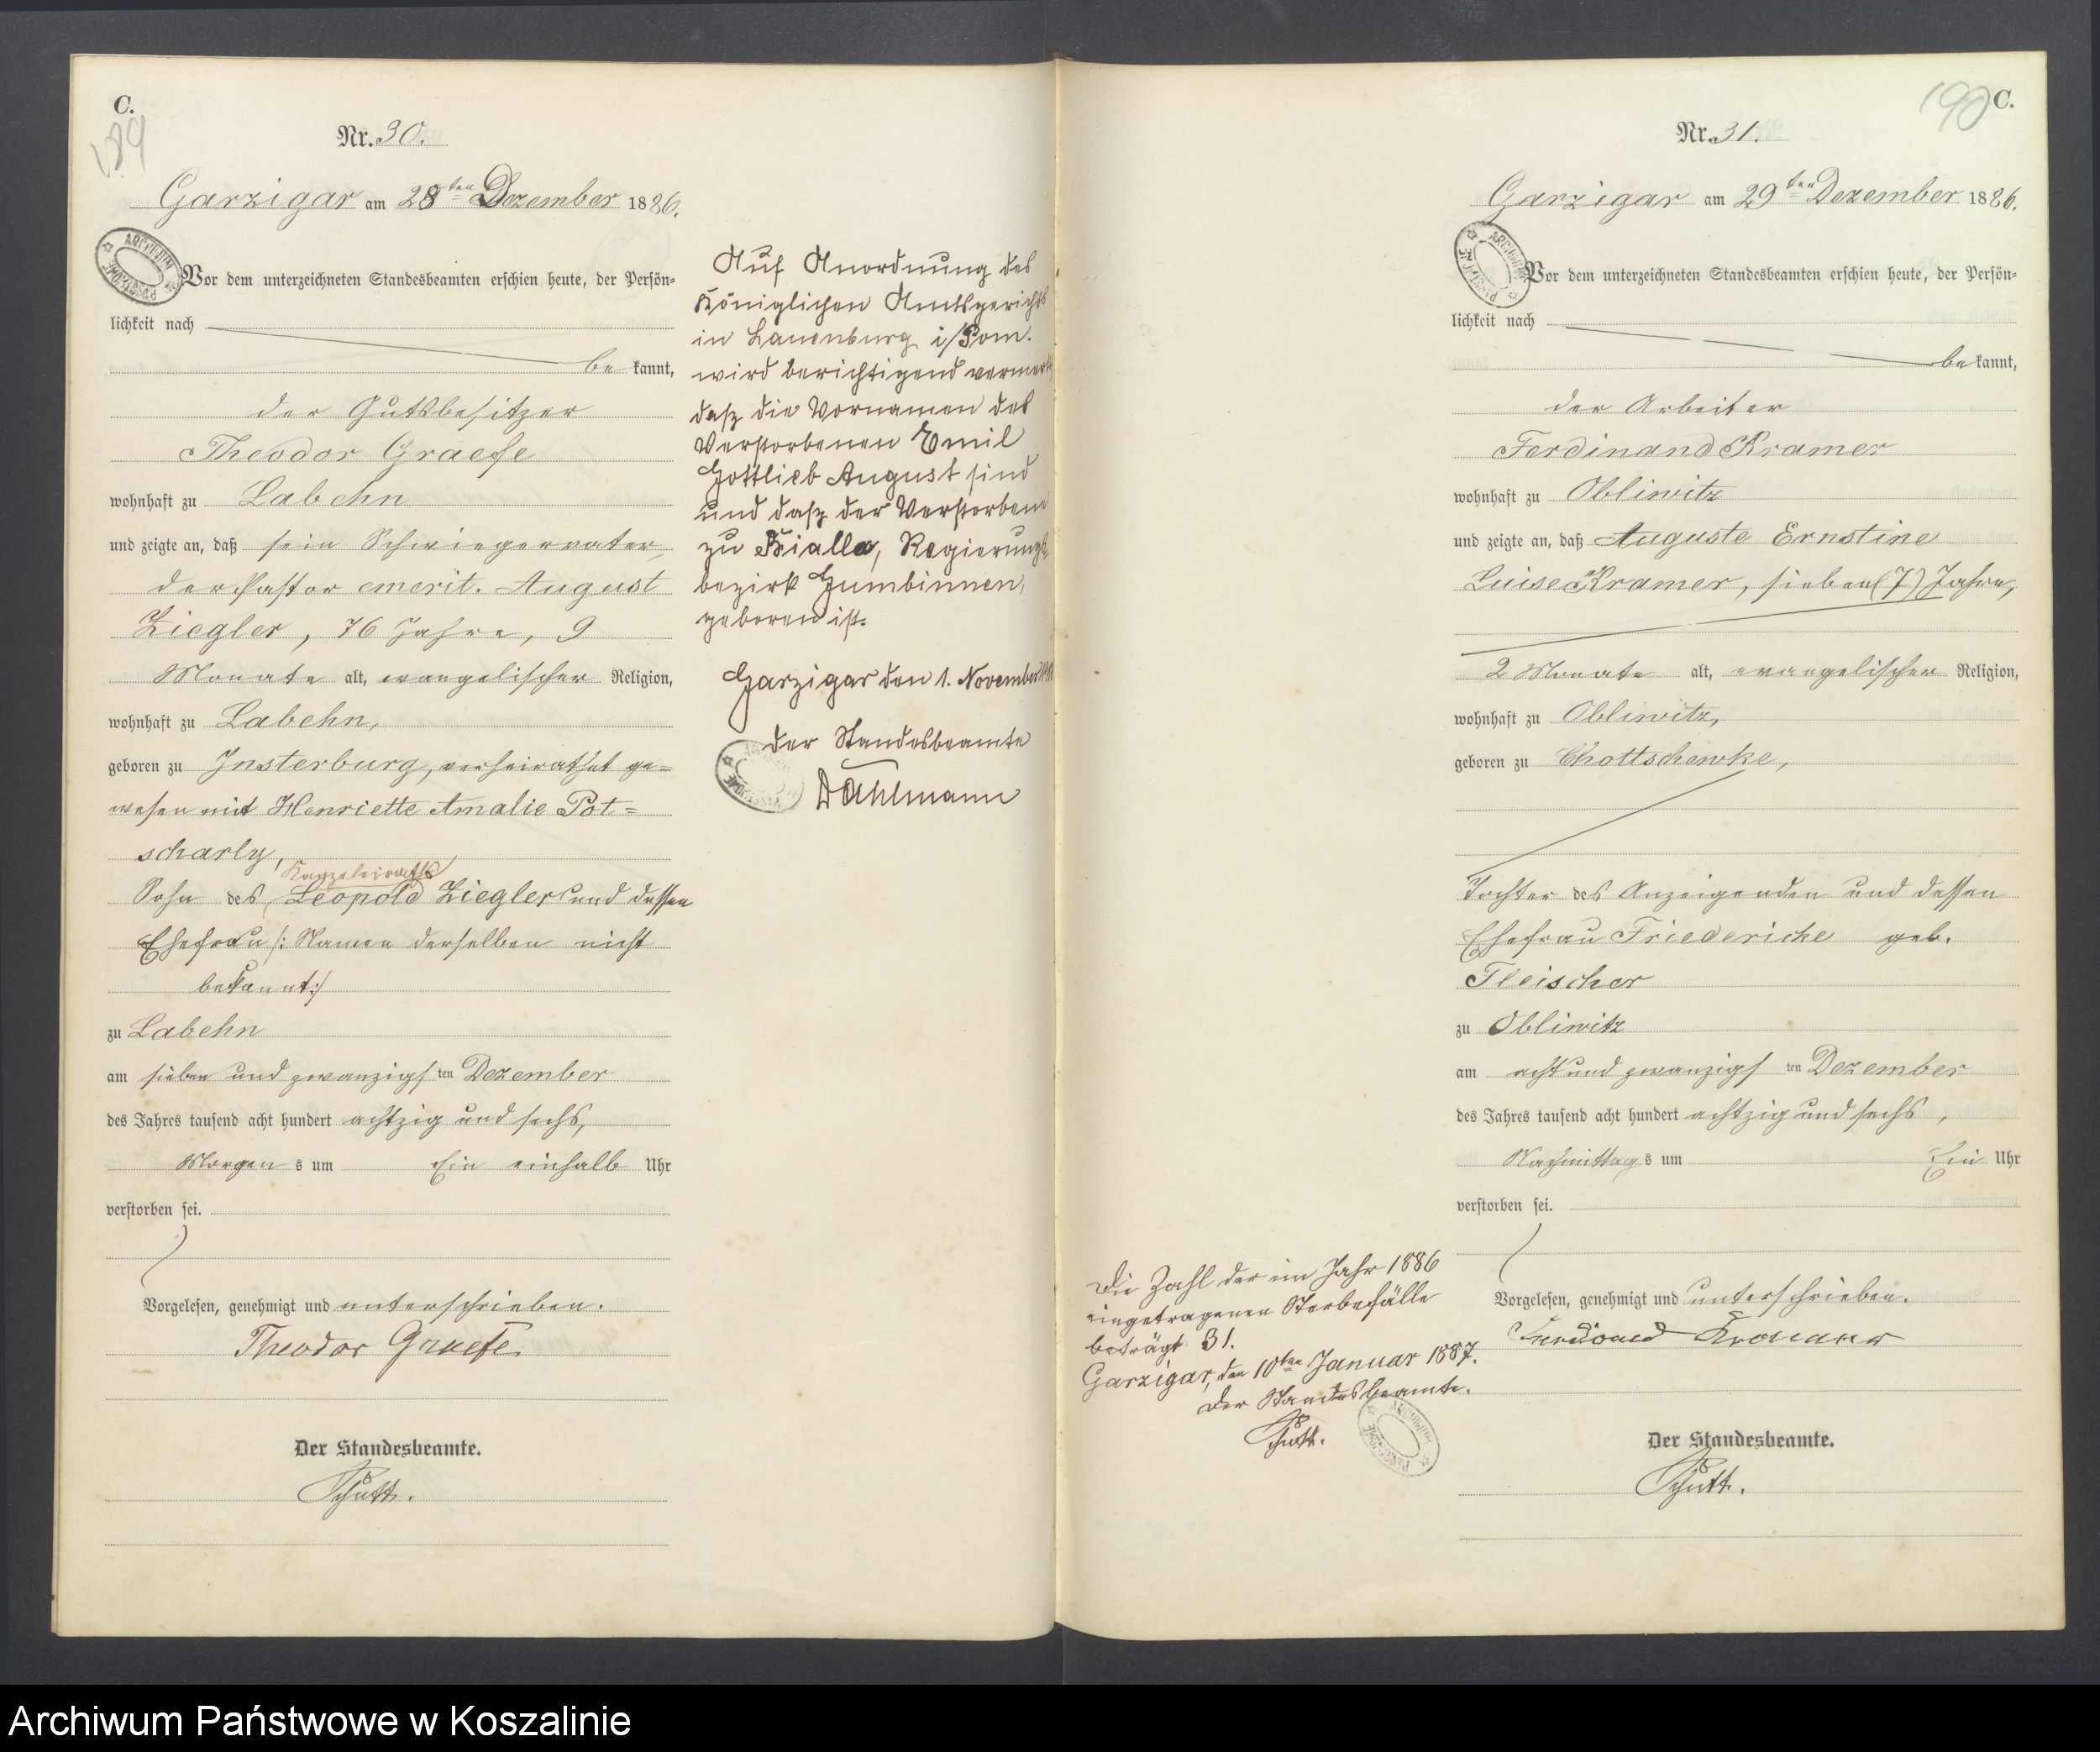 C.
189
Nr. 30.
Garzigar am 28ten Dezember 1886.
Vor dem unterzeichneten Standesbeamten erschien heute, der Persön-
lichkeit nach
be kannt,
der Gutsbesitzer
Theodor Graefe
wohnhaft zu Labehn
und zeigte an, daß sein Schwiegervater,
der Pastor emerit. August
Ziegler, 76 Jahre, 9
Monate alt, evangelischer Religion,
wohnhaft zu Labehn,
geboren zu Insterburg, verheirathet ge-
wesen mit Henriette Amalie Pot-
scharly,
Kanzleiraths
Sohn des Leopold Ziegler und dessen
Ehefrau /: Namen derselben nicht
bekannt :/
zu Labehn
am sieben und zwanzigsten Dezember
des Jahres tausend acht hundert achtzig und sechs,
Morgens um Ein einhalb Uhr
verstorben sei.
Vorgelesen, genehmigt und unterschrieben.
Theodor Graefe.
Der Standesbeamte.
Auf Anordnung des
Königlichen Amtsgerichts
in Lauenburg i/Pom.
wird berichtigend vermerkt,
daß die Vornamen des
Verstorbenen Emil
Gottlieb August sind
und daß der Verstorbene
zu Bialla, Regierungs-
bezirk Gumbinnen,
geboren ist.
Garzigar den 1. November
der Standesbeamte
Dahlmann
190
C.
Nr. 31.
Garzigar am 29ten Dezember 1886.
Vor dem unterzeichneten Standesbeamten erschien heute, der Persön-
lichkeit nach
be kannt,
der Arbeiter
Ferdinand Kramer
wohnhaft zu Obliwitz
und zeigte an, daß Auguste Ernstine
Luise Kramer, sieben (7) Jahre,
2 Monate alt, evangelischer Religion,
wohnhaft zu Obliwitz,
geboren zu Chottschewke,
Tochter des Anzeigenden und dessen
Ehefrau Friedericke geb.
Fleischer
zu Obliwitz
am acht und zwanzigsten Dezember
des Jahres tausend acht hundert achtzig und sechs,
Nachmittags um Ein Uhr
verstorben sei.
Vorgelesen, genehmigt und unterschrieben.
Ferdinand Kramer
Der Standesbeamte.
Die Zahl der im Jahr 1886
eingetragenen Sterbefälle
beträgt 31.
Garzigar, den 10ten Januar 1887.
Der Standesbeamte.
Archiwum Państwowe w Koszalinie